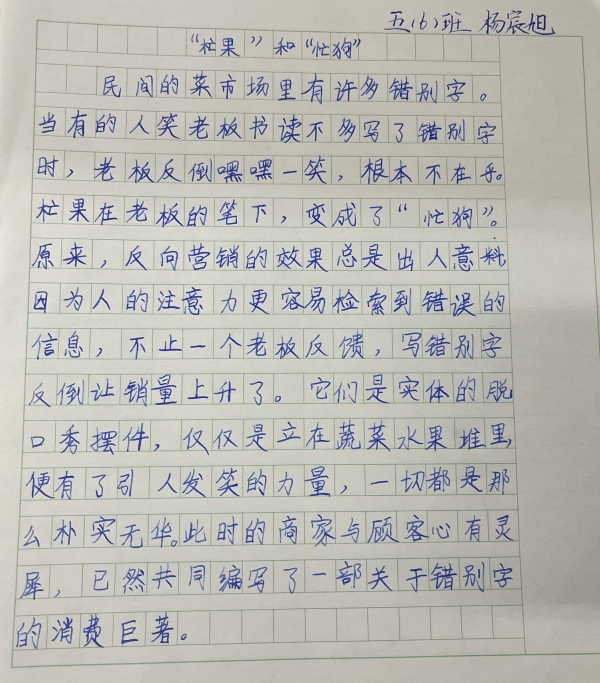 五(6)班 杨宸旭
“杧果”和“忙狗”
民间的菜市场里有许多错别字。
当有的人笑老板书读不多写了错别字
时，老板反倒嘿嘿一笑，根本不在乎。
杧果在老板的笔下，变成了“忙狗”。
原来，反向营销的效果总是出人意料
因为人的注意力更容易检索到错误的
信息，不止一个老板反馈，写错别字
反倒让销量上升了。它们是实体的脱
口秀摆件，仅仅是立在蔬菜水果堆里，
便有了引人发笑的力量，一切都是那
么朴实无华。此时的商家与顾客心有灵
犀，已然共同编写了一部关于错别字
的消费巨著。